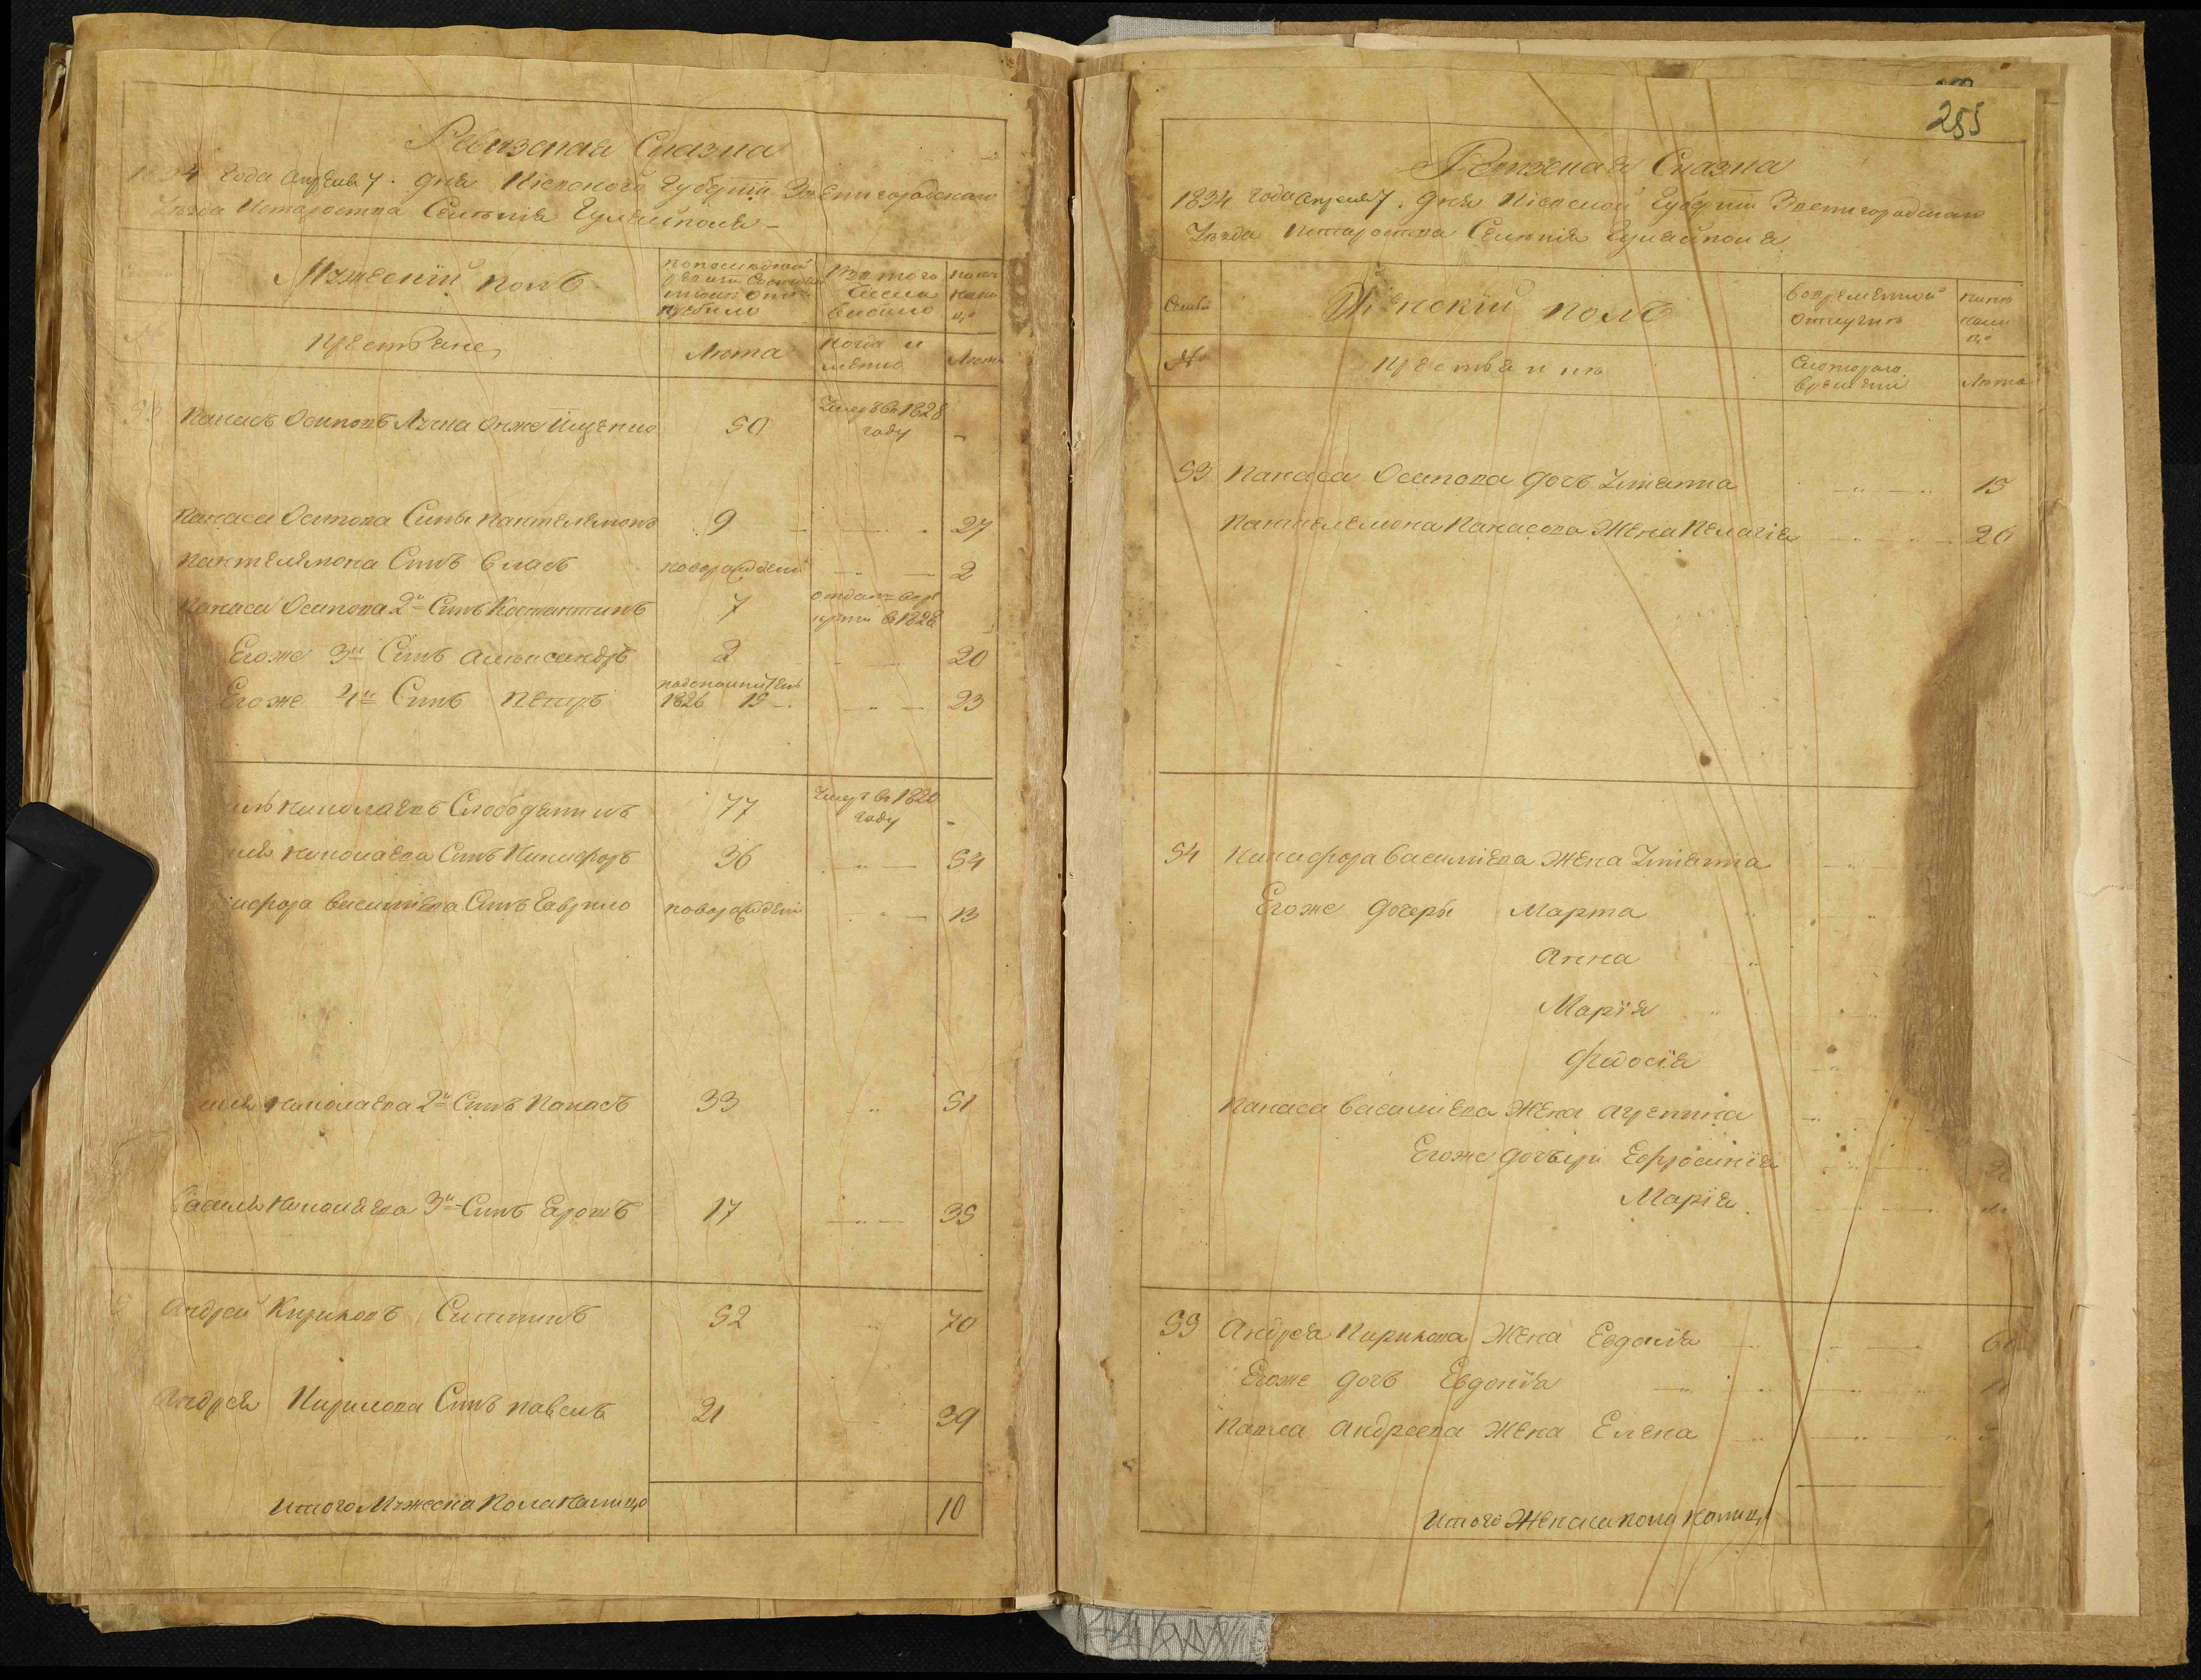 Ревизская Сказка
1834 года Апреля 7. дня Кіевской Губерніи Звенигородскаго
Уезда Староства Селенія Гуляйполя
Мужескій полъ
по последней ревизіи состояло и после оной прибыло
Изъ того числа выбыло
Ныне налицо
№
крестьяне
Лета
когда именно
Лета
Панасъ Осиповъ Лучка онже Ищенко 50 Умеръ въ 1828 году -
Панаса Осипова Сынъ Пантелемонъ 9 27
Пантелемона Сынъ Власъ новорожденъ 2
Панаса Осипова 2й Сынъ Костантинъ 7 отданъ в рекруты в 1828
Егоже 3й Сынъ Александръ 2 20
Егоже 4й Сынъ Петръ 1826 15 23
илъ Николаевъ Слободяникъ 77 Умеръ въ 1820 году -
иля Николаева Сынъ Никифоръ 36 54
ифора Василиева Сынъ Гаврило новорожденъ 13
иля Николаева 2й Сынъ Панасъ 33 51
Василя Николаева 3й Сынъ Ерофъ 17 35
Андрей Кириловъ Ситникъ 52 70
Андрея Кирилова Сынъ Павелъ 21 39
Итого Мужеска Пола Налицо 10
255
Ревизская Сказка
1834 года Апреля 7. дня Кіевской Губерніи Звенигородскаго
Уезда Староства Селенія Гуляйполя
Семьи
Женскій полъ
во временной отлучке
ныне налицо
№
крестьянки
С котораго времени
Лета
53 Панаса Осипова дочь Уліанна 15
Пантелемона Панасова Жена Пелагія 20
54 Никифора Василиева Жена Уліанна
Егоже дочеры Марта
Анна
Марія
Федосія
Панаса Василиева Жена
Егоже дочери Ефросинія
Марія
55 Андрея Кирилова Жена Евдокія
Егоже дочь Евдокія
Павла Андреева Жена Елена
Итого Женска пола налицо